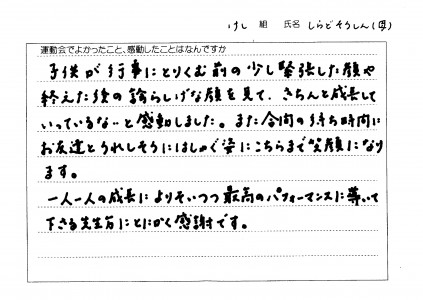 けし 組 氏名 しらどそうしん(母)
運動会でよかったこと、感動したことはなんですか
子供が行事にとりくむ前の少し緊張した顔や
終えた後の誇らしげな顔を見て、きちんと成長して
いっているな〜と感動しました。また合間の待ち時間に
お友達とうれしそうにはしゃぐ姿にこちらまで笑顔になり
ます。
一人一人の成長によりそいつつ最高のパフォーマンスに導いて
下さる先生方にとにかく感謝です。